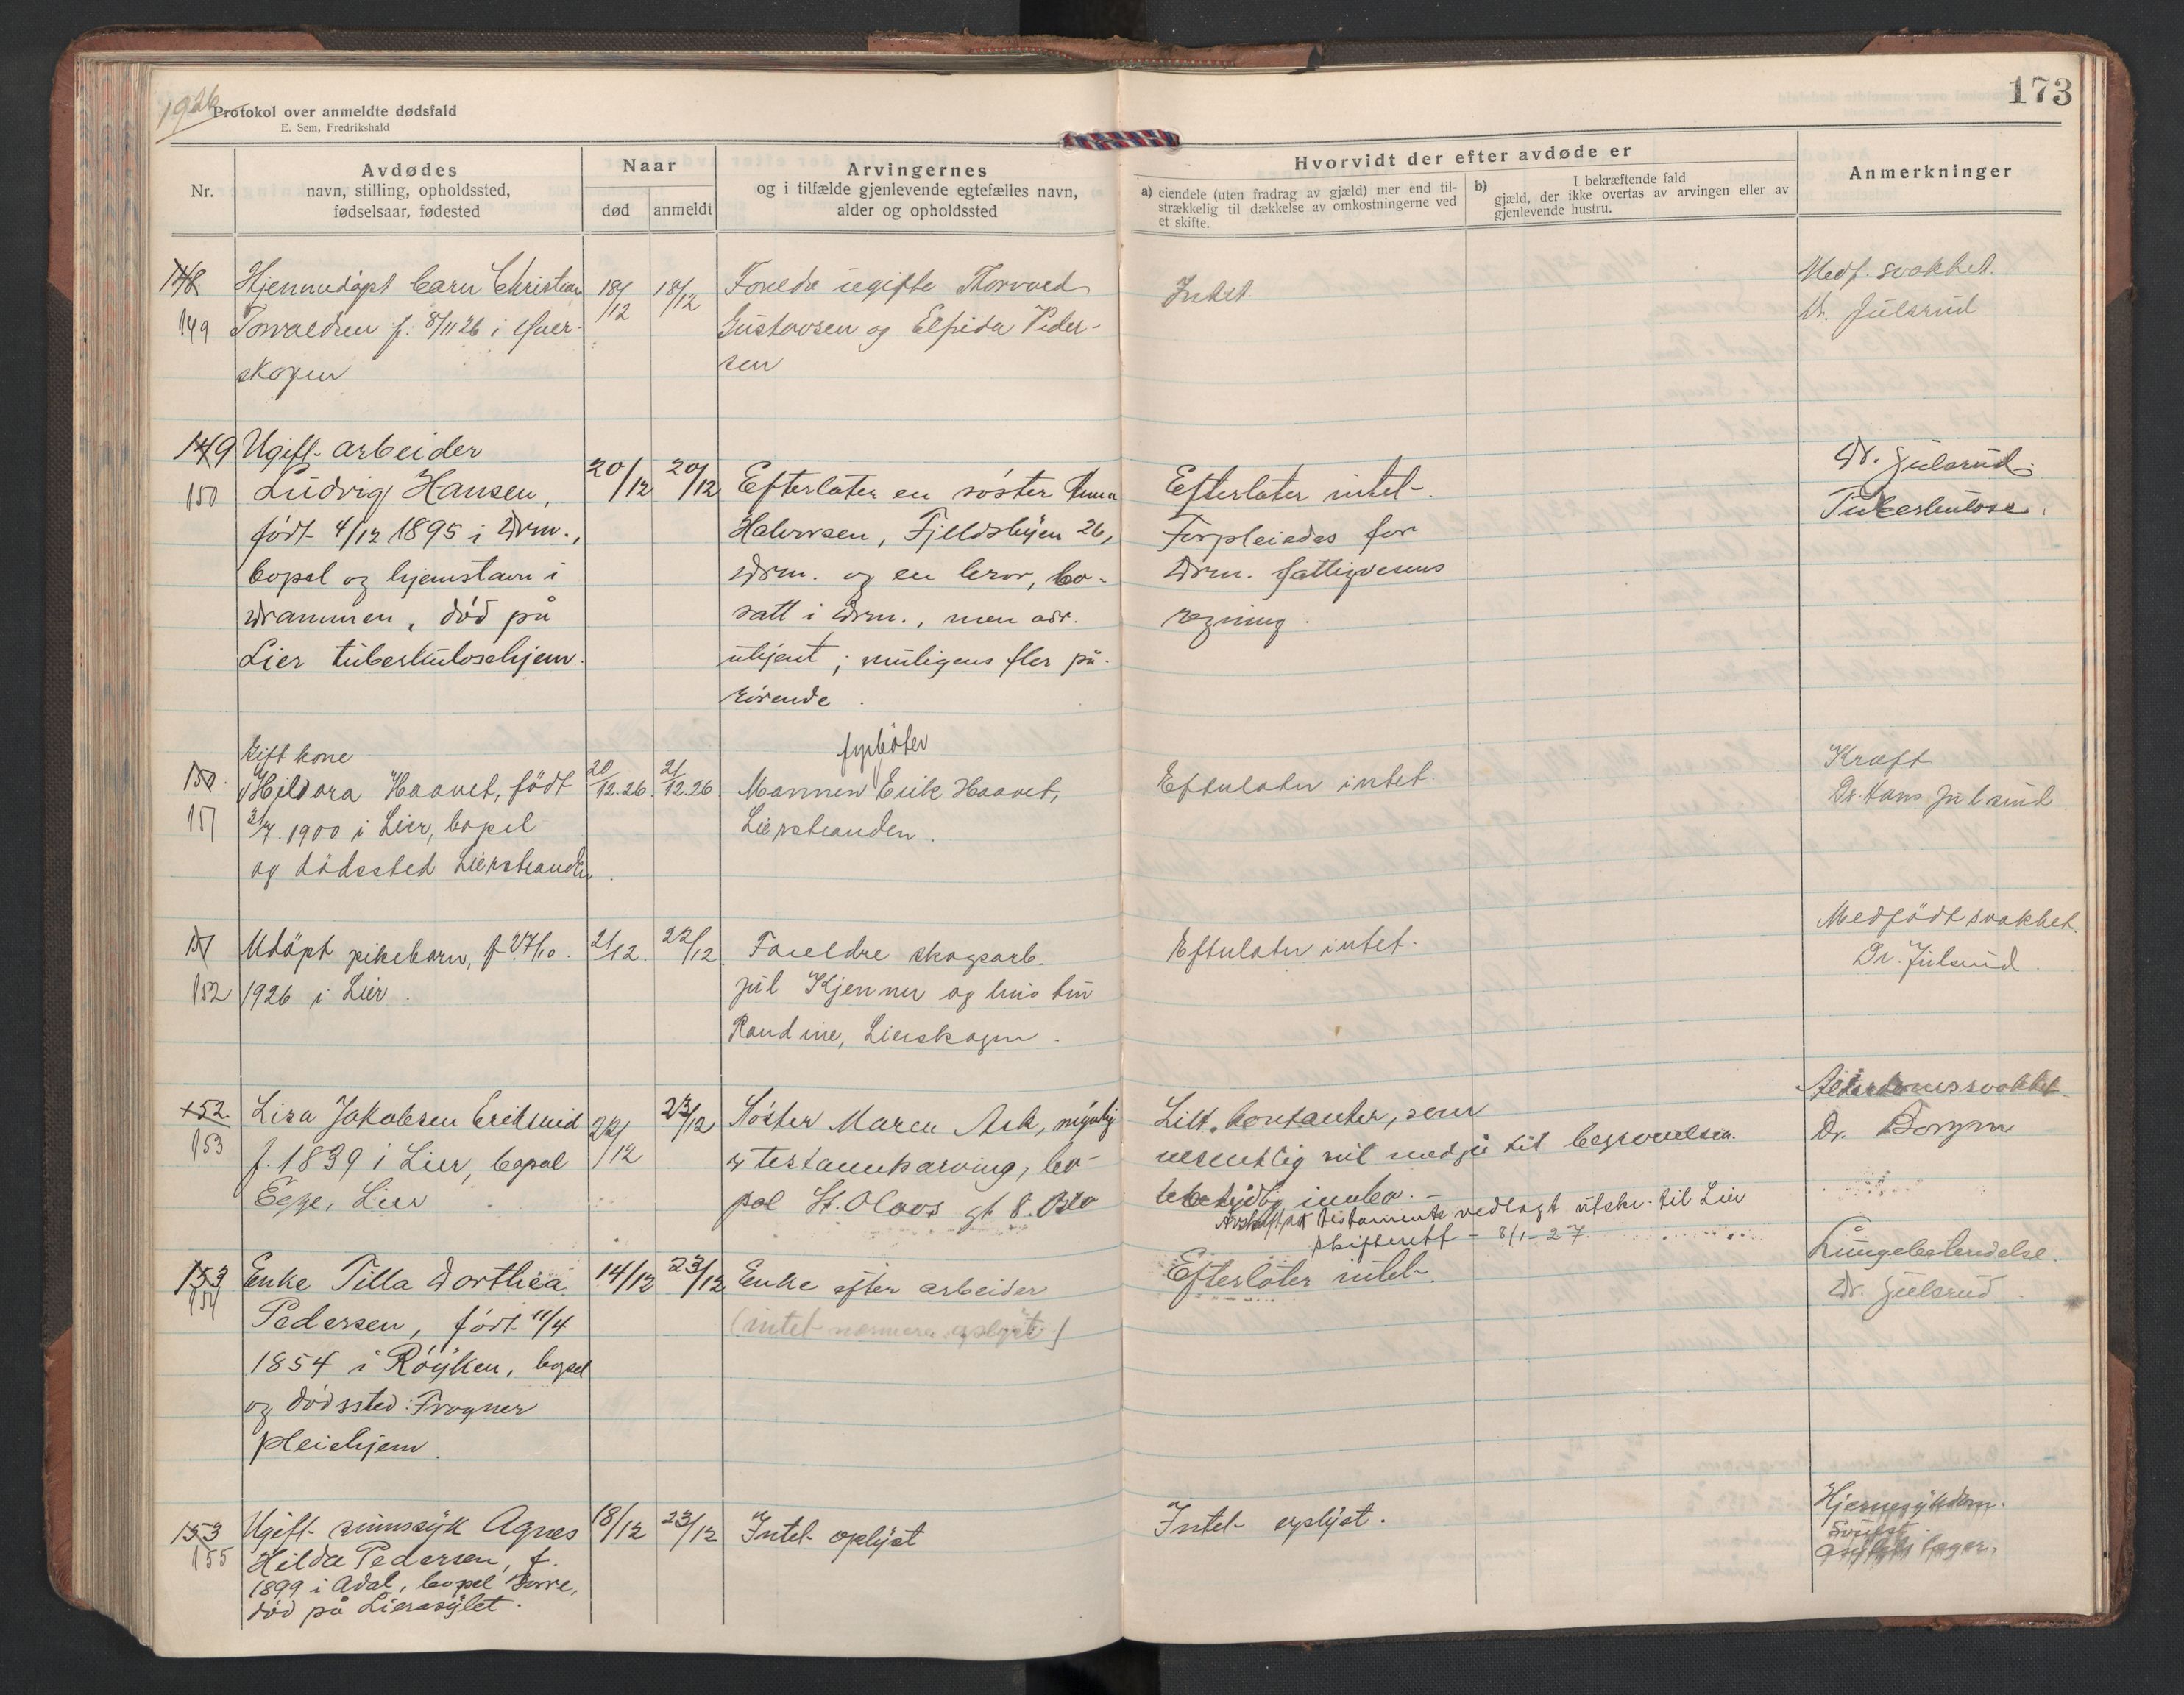 1926
Protokol over anmeldte dødsfald
E. Sem, Fredrikshald
173
Nr.
Avdødes
navn, stilling, opholdssted,
fødselsaar, fødested
Naar
død
anmeldt
Arvingernes
og i tilfælde gjenlevende egtefælles navn,
alder og opholdssted
Hvorvidt der efter avdøde er
a) eiendele (uten fradrag av gjæld) mer end til-
strækkelig til dækkelse av omkostningerne ved
et skifte.
b) I bekræftende fald
gjæld, der ikke overtas av arvingen eller av
gjenlevende hustru.
Anmerkninger
148.
149
Hjemmedøpt barn Christian
Torvaldsen f. 8/11 26 i
skogen
18/12
18/12
Foreldre ugifte Thorvald
Gustavsen og Elfrida Peder-
sen
Intet.
Medf. svakhet.
Dr. Julsrud
149
150
Ugift arbeider
Ludvig Hansen,
født 4/12 1895 i Drm.,
bopel og hjemstavn i
Drammen, død på
Lier tuberkulosehjem.
20/12
20/12
Efterlater en søster Anna
Halvorsen, 26,
Drm. og en bror, bo-
satt i Drm., men adr.
ukjent; muligens fler på-
rørende.
Efterlater intet.
Forpleiedes for
Drm. fattigvesens
regning.
Dr. Julsrud.
Tuberkulose.
150.
151
Gift kone
Hildora Haavet, født
31/7. 1900 i Lier, bopel
og dødssted Lierstranden.
20/12.26.
21/12.26
fyrbøter
Mannen Erik Haavet,
Lierstranden.
Efterlater intet.
Kraft
Dr. Hans Julsrud
151
152
Udøpt pikebarn, f. 27/10.
1926 i Lier.
21/12.
22/12
Foreldre skogsarb.
Jul Kjenner og hustru
Randine, Lierskogen.
Efterlater intet.
Medfødt svakhet.
Dr. Julsrud.
152.
153
Lisa Jakobsen Eriksrud
f. 1839 i Lier, bopel
Egge, Lier
22/12
23/12
Søster Maren Ask,
er testamentsarving, bo-
pel St. Olavs gt 8. Oslo
Litt kontanter, som
vesentlig vil medgå til begravelsen.
innbo.-
Avskrift av testamente vedlagt utskr. til Lier
skifterett - 8/1-27.
Alderdomssvakhet.
Dr. Borgen
153
154
Enke Tilla Dorthea
Pedersen, født 11/4
1854 i Røyken, bopel
og dødssted: Frogner
pleiehjem.
14/12
23/12
Enke efter arbeider
(intet nærmere oplyst)
Efterlater intet.
Lungebetendelse.
Dr. Julsrud.
153
155
Ugift sinnssyk Agnes
Hilda Pedersen, f.
1899 i Ådal, bopel Borre,
død på Lierasylet.
18/12
23/12
Intet oplyst
Intet oplyst.
Hjernesykdom.
Svulst.
Asylets læger.